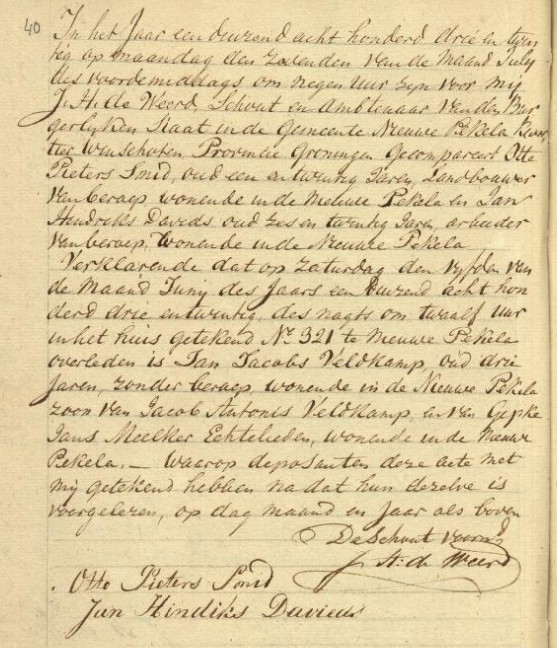 40
In het Jaar een duizend acht honderd drie en twin
tig op maandag den zevenden van de Maand July
des voordemiddags om negen uur zyn voor mij
J. H. de Weerd, Schout en Ambtenaar van den Bur
gerlyken Staat in de Gemeente Nieuwe Pekela Kwar
tier Winschoten, Provincie Groningen Gecompareert Otto
Pieters Smid, oud een en twintig Jaren, Landbouwer
van beroep, wonende in de Nieuwe Pekela en Jan
Hendriks Davids oud zes en twintig Jaren, arbeider
van beroep, wonende in de Nieuwe Pekela
Verklarende dat op zaturdag den vyfden van
de Maand Juny des Jaars een duizend acht hon
derd drie en twintig, des nagts om twaalf uur
in het huis getekend No. 321 te Nieuwe Pekela
overleden is Jan Jacobs Veldkamp, oud drie
Jaren, zonder beroep, wonende in de Nieuwe Pekela
zoon van Jacob Antonis Veldkamp, en van Gepke
Jans Meelker Echtelieden, wonende in de Nieuwe
Pekela. — Waarop deposanten deze acte met
mij getekend hebben na dat hun dezelve is
voorgelezen, op dag maand en Jaar als boven
De Schout voornd
J. H. de Weerd
Otto Pieters Smid
Jan Hindriks Davieds